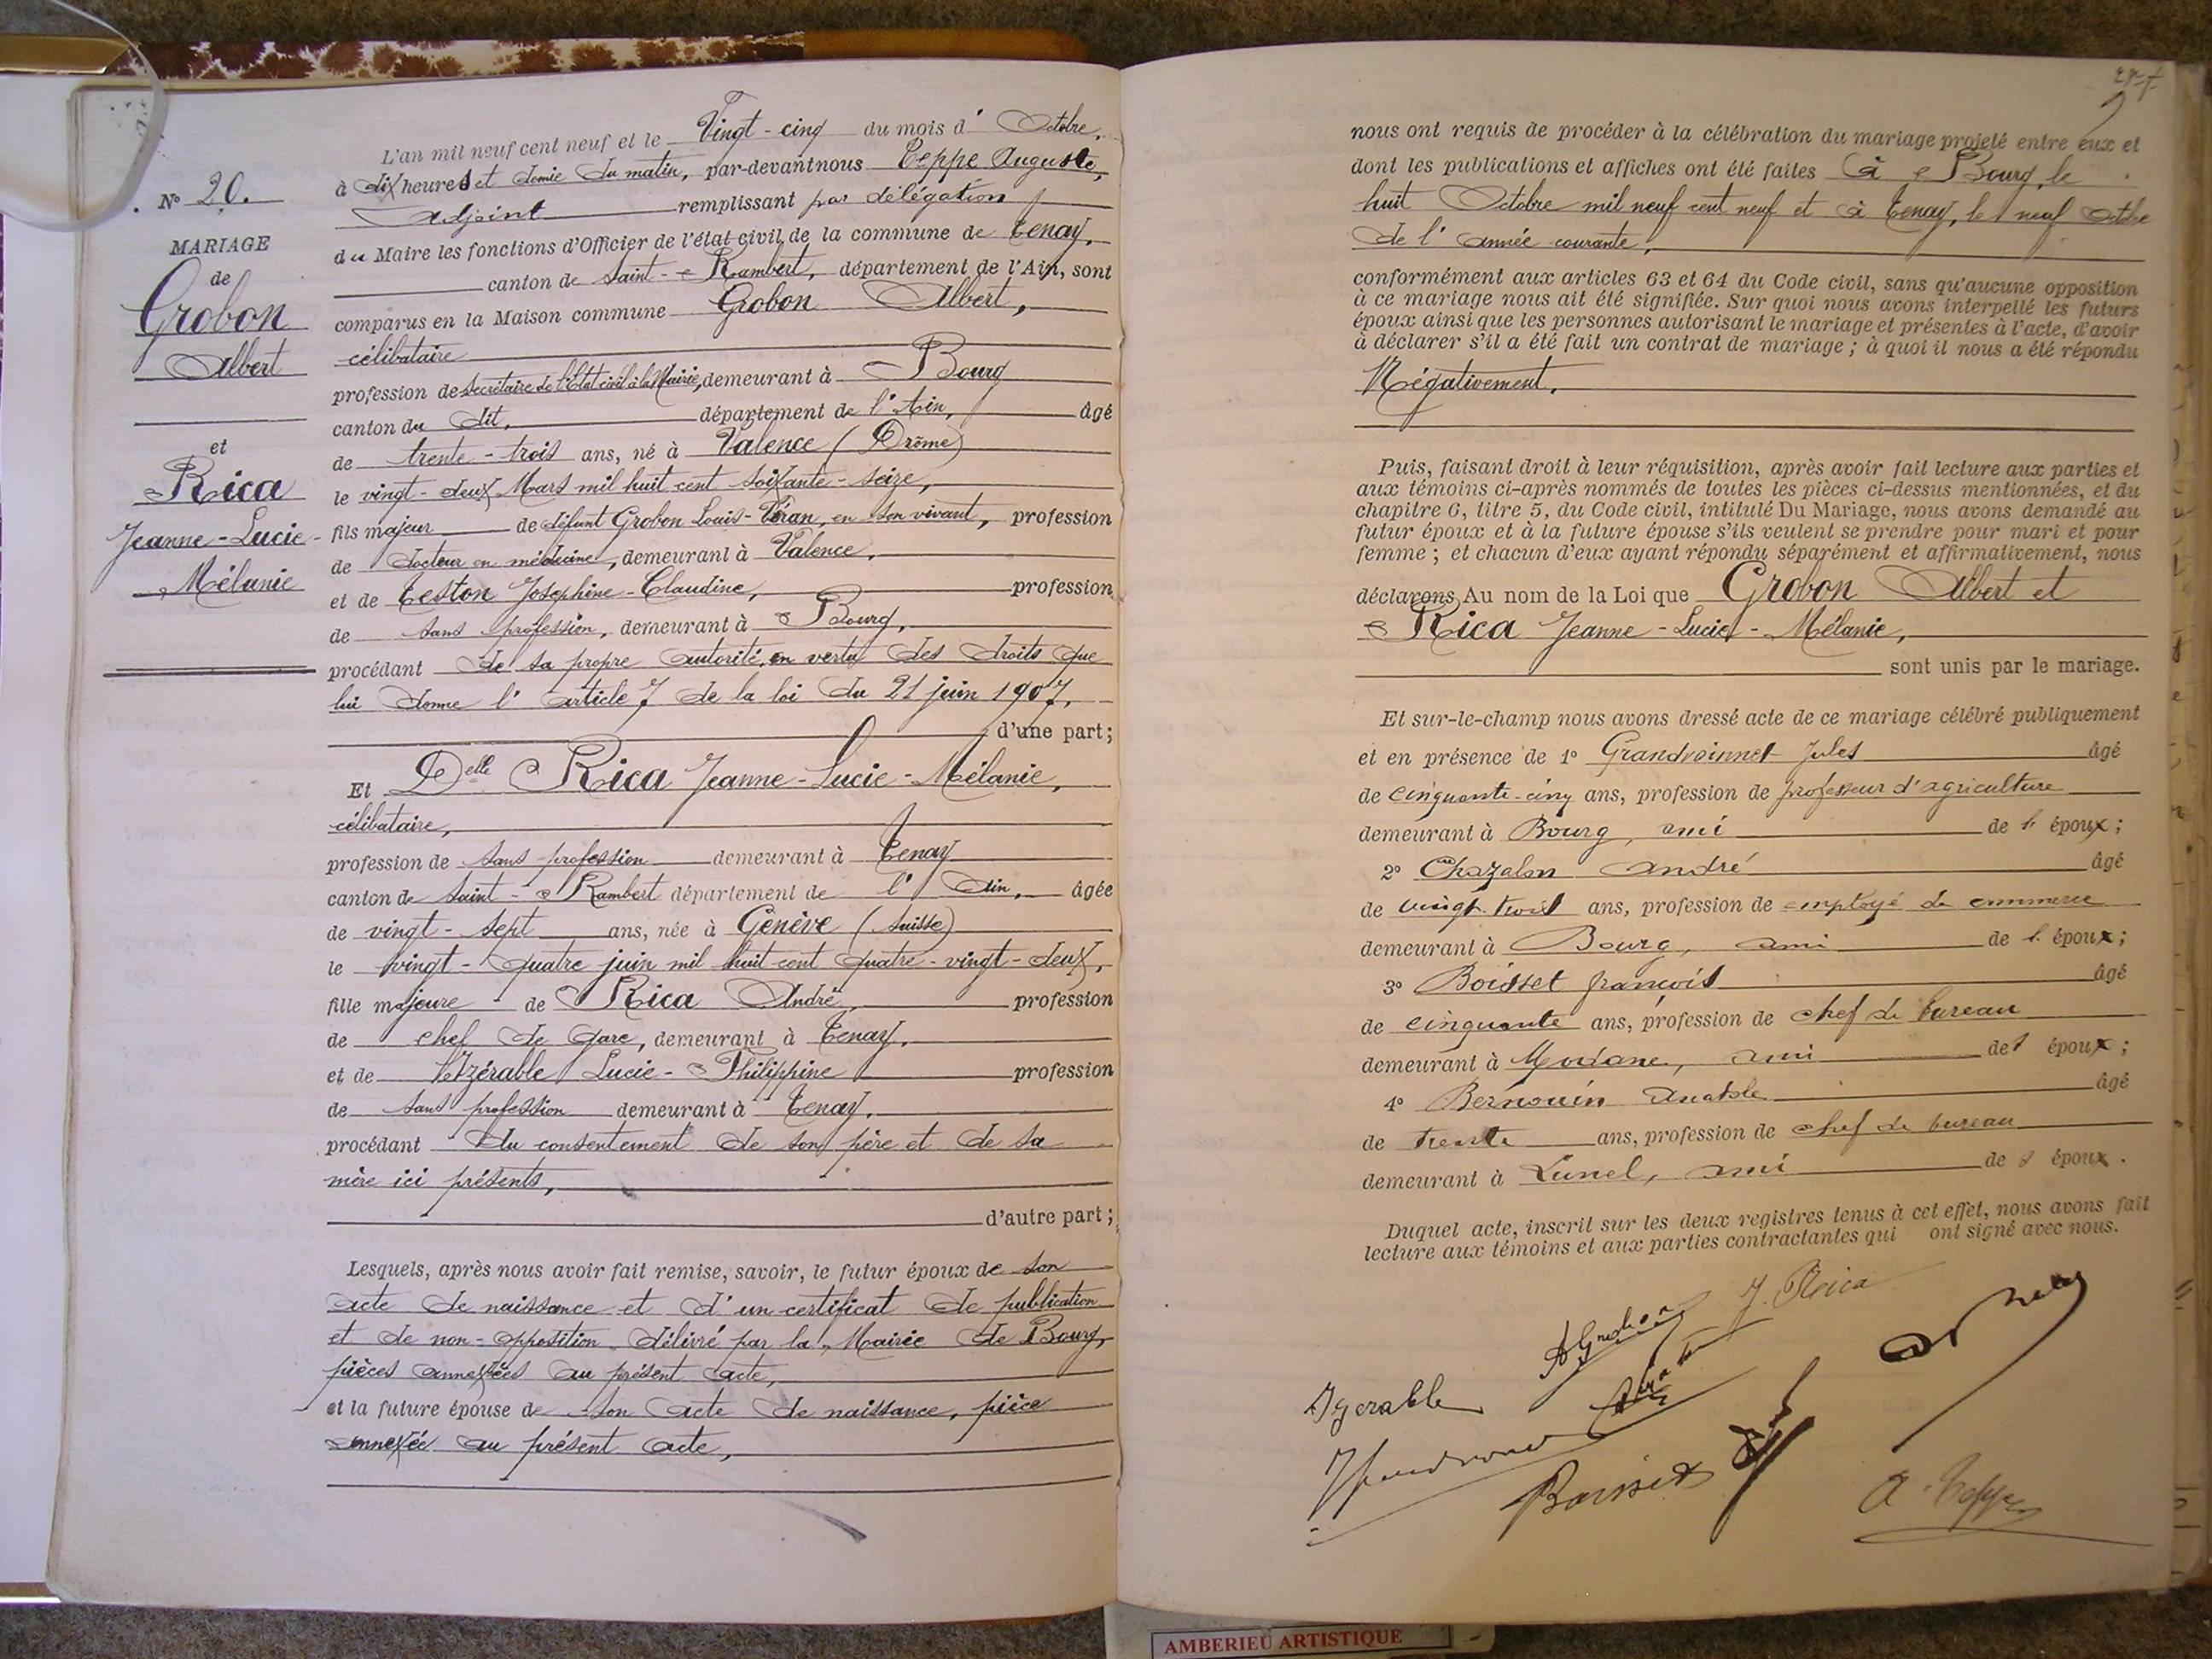 N° 20.
MARIAGE
de
Grobon
Albert
et
Rica
Jeanne-Lucie-
Mélanie
L'an mil neuf cent neuf et le Vingt-cinq du mois d'Octobre,
à dix heures et demie du matin, par-devant nous Teppe Auguste,
adjoint remplissant par délégation
du Maire les fonctions d'Officier de l'état civil de la commune de Tenay,
canton de Saint-Rambert, département de l'Ain, sont
comparus en la Maison commune Grobon Albert,
célibataire
profession de secrétaire de l'état civil à la Mairie, demeurant à Bourg
canton du dit, département de l'Ain, âgé
de trente-trois ans, né à Valence (Drôme)
le vingt-deux Mars mil huit cent soixante-seize,
fils majeur de défunt Grobon Louis-Véran, en son vivant, profession
de docteur en médecine, demeurant à Valence,
et de Teston Joséphine-Claudine, profession
de sans profession, demeurant à Bourg,
procédant de sa propre autorité, en vertu des droits que
lui donne l'article 7 de la loi du 21 juin 1907,
d'une part;
Et Delle Rica Jeanne-Lucie-Mélanie,
célibataire,
profession de sans profession demeurant à Tenay
canton de Saint-Rambert département de l'Ain, âgée
de vingt-sept ans, née à Genève (Suisse)
le vingt-quatre juin mil huit cent quatre-vingt-deux,
fille majeure de Rica André, profession
de chef de gare, demeurant à Tenay,
et de Lucie-Philippine profession
de sans profession demeurant à Tenay,
procédant du consentement de son père et de sa
mère ici présents,
d'autre part;
Lesquels, après nous avoir fait remise, savoir, le futur époux de son
acte de naissance et d'un certificat de publication
et de non-opposition délivré par la Mairie de Bourg,
pièces annexées au présent acte,
et la future épouse de son acte de naissance, pièce
annexée au présent acte,
nous ont requis de procéder à la célébration du mariage projeté entre eux et
dont les publications et affiches ont été faites à Bourg, le
huit Octobre mil neuf cent neuf et à Tenay, le neuf Octobre
de l'année courante,
conformément aux articles 63 et 64 du Code civil, sans qu'aucune opposition
à ce mariage nous ait été signifiée. Sur quoi nous avons interpellé les futurs
époux ainsi que les personnes autorisant le mariage et présentes à l'acte, d'avoir
à déclarer s'il a été fait un contrat de mariage; à quoi il nous a été répondu
Négativement.
Puis, faisant droit à leur réquisition, après avoir fait lecture aux parties et
aux témoins ci-après nommés de toutes les pièces ci-dessus mentionnées, et du
chapitre 6, titre 5, du Code civil, intitulé Du Mariage, nous avons demandé au
futur époux et à la future épouse s'ils veulent se prendre pour mari et pour
femme; et chacun d'eux ayant répondu séparément et affirmativement, nous
déclarons Au nom de la Loi que Grobon Albert et
Rica Jeanne-Lucie-Mélanie,
sont unis par le mariage.
Et sur-le-champ nous avons dressé acte de ce mariage célébré publiquement
et en présence de 1° Grandvoinnet Jules âgé
de cinquante-cinq ans, profession de professeur d'agriculture
demeurant à Bourg, ami de l' époux;
2° Chazalon André âgé
de vingt-trois ans, profession de employé de commerce
demeurant à Bourg, ami de l' époux;
3° Boisset françois âgé
de cinquante ans, profession de chef de bureau
demeurant à Modane, ami de l' époux;
4° Bernouin Anatole âgé
de trente ans, profession de chef de bureau
demeurant à Lunel, ami de l' époux.
Duquel acte, inscrit sur les deux registres tenus à cet effet, nous avons fait
lecture aux témoins et aux parties contractantes qui ont signé avec nous.
J. Rica
Boisset
A. Teppe
AMBERIEU ARTISTIQUE